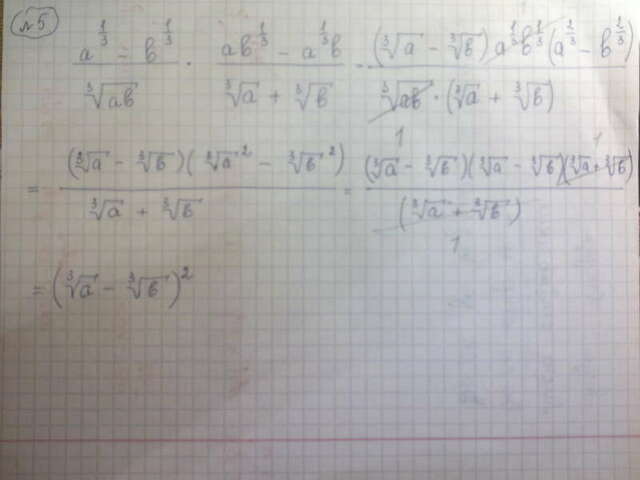 №5
\frac{a^{\frac{1}{3}} - b^{\frac{1}{3}}}{\sqrt[3]{ab}} \cdot \frac{ab^{\frac{1}{3}} - a^{\frac{1}{3}}b}{\sqrt[3]{a} + \sqrt[3]{b}} - \frac{(\sqrt[3]{a} - \sqrt[3]{b}) a^{\frac{1}{3}}b^{\frac{1}{3}}(a^{\frac{2}{3}} - b^{\frac{2}{3}})}{\sqrt[3]{ab} \cdot (\sqrt[3]{a} + \sqrt[3]{b})}
1
= \frac{(\sqrt[3]{a} - \sqrt[3]{b})(\sqrt[3]{a}^2 - \sqrt[3]{b}^2)}{\sqrt[3]{a} + \sqrt[3]{b}} = \frac{(\sqrt[3]{a} - \sqrt[3]{b})(\sqrt[3]{a} - \sqrt[3]{b})(\sqrt[3]{a} + \sqrt[3]{b})}{(\sqrt[3]{a} + \sqrt[3]{b})}
1
1
= (\sqrt[3]{a} - \sqrt[3]{b})^2